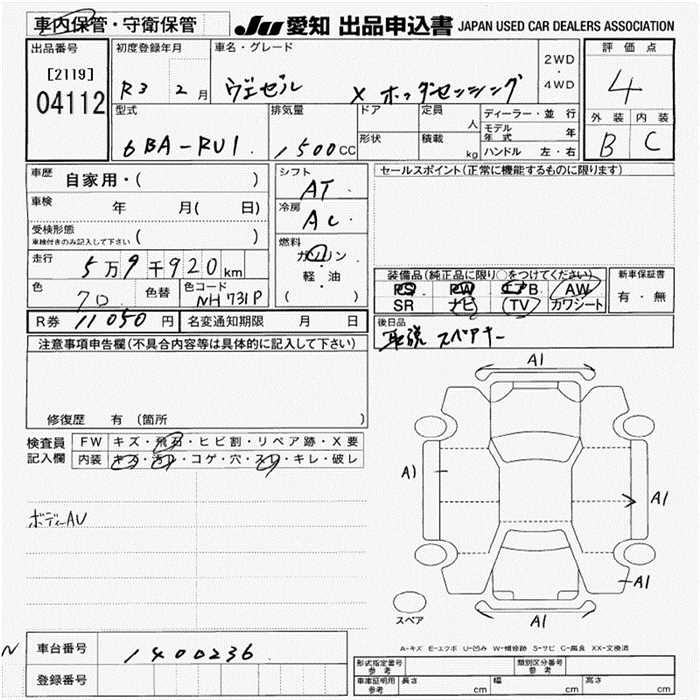 車内保管・守衛保管 JU 愛知 出品申込書 JAPAN USED CAR DEALERS ASSOCIATION
出品番号 初度登録年月 車名・グレード 2WD 評価点
[2119] R3 2月 ヴェゼル X ホンダセンシング ・ 4
04112 4WD
型式 排気量 ドア 定員 人 ディーラー・並行 外装 内装
モデル年式 年
6BA-RU1. 1500CC 形状 積載 kg ハンドル 左・右 B C
車歴 自家用・( ) シフト AT セールスポイント(正常に機能するものに限ります)
車検 年 月( 日) 冷房 AC
受検形態 ( )
車検付きのみ記入して下さい
燃料
走行 5万9千920km ガソリン 装備品(純正品に限り○をつけてください) 新車保証書
軽・油 PS PW エアB AW 有・無
色 70 色替 色コード NH731P ( ) SR ナビ TV カワシート
R券 11050円 名変通知期限 月 日 後日品
取説 スペアキー
注意事項申告欄(不具合内容等は具体的に記入して下さい)
修復歴 有 (箇所 )
検査員 FW キズ・飛石・ヒビ割・リペア跡・X要
記入欄 内装 キズ・汚レ・コゲ・穴・スレ・キレ・破レ
A1
A1
A1
ボディーAU
A1
A1
スペア
A-キズ E-エクボ U-凹み W-補修跡 S-サビ C-腐食 XX-交換済
N 車台番号 1400236
登録番号
形式指定番号 参考 類別区分番号 参考
車庫証明用 参考 長さ cm 幅 cm 高さ cm